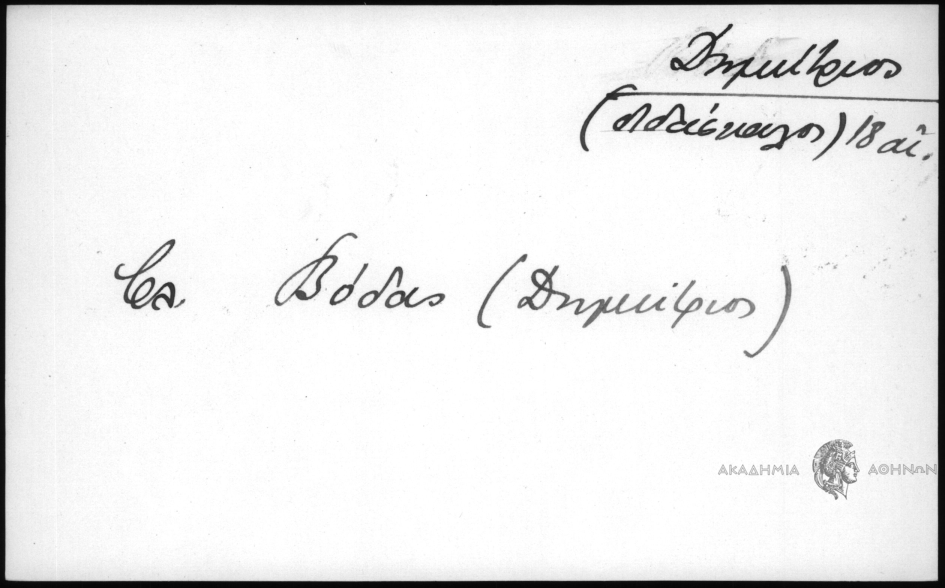 Δημήτριος
(διδάσκαλος) 18 αἰ.
Βλ. Βόδας (Δημήτριος)
ΑΚΑΔΗΜΙΑ ΑΘΗΝΩΝ